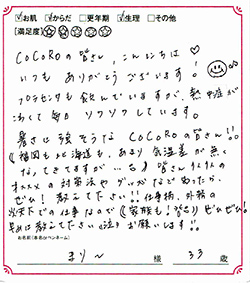 ☑お肌 ☑からだ □更年期 ☑生理 □その他
[満足度] ☆☆☆☆☆
CoCoRoの皆さん、こんにちは♡
いつも ありがとうございます!
プラセンタも飲んでいますが、熱中症が
こわくて 毎日 ソワソワしています。
暑さに強そうな CoCoRoの皆さん!!
(福岡も北海道も、あまり気温差が無
なってきてますが…)皆さん
オススメの対策法や グッズなど あったら、
ぜひ!教えて下さい!!仕事柄、外勤の
炎天下での仕事なので(家族も!皆)ぜひぜひ!
教えて下さい(泣)お願いします!!
お名前(本名orペンネーム)
まりー 様 33 歳